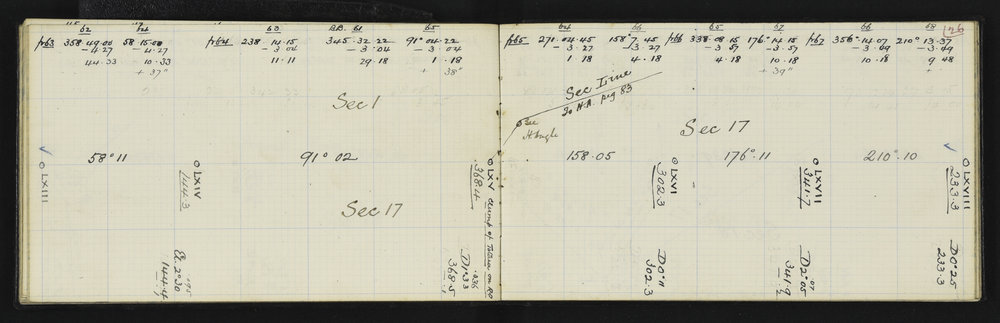 62 64 63 B.B. 61 65
fr63 358·49·00 58·15·00 fr64 238·14·15 345·32·22 91°04·22
—4·27 —4·27 —3·04 —3·04 —3·04
44·33 10·33 11·11 29·18 1·18
+ 37" + 38"
Sec 1
58°11 91° 02
O LXIII
O LXIV
144·3
O LXV
368·4
Sec 17
El. 2°30
·195
144·4
D1°33
·036
368·5
64 66 65 67 66 68
fr65 271·04·45 158°7·45 fr66 338·08·15 176°14·15 fr67 356°14·07 210°13·37
—3·27 —3·27 —3·57 —3·57 —3·49 —3·49
1·18 4·18 4·18 10·18 10·18 9·48
+ 39" +
126
Sec Line
20 H.A. pag 83
See
H Angle
Sec 17
158·05 176°·11 210°·10
O LXVI
302·3
O LXVII
341·7
O LXVIII
233·3
D0°11
302·3
D2°05
·07
341·9
D0°25
233·3